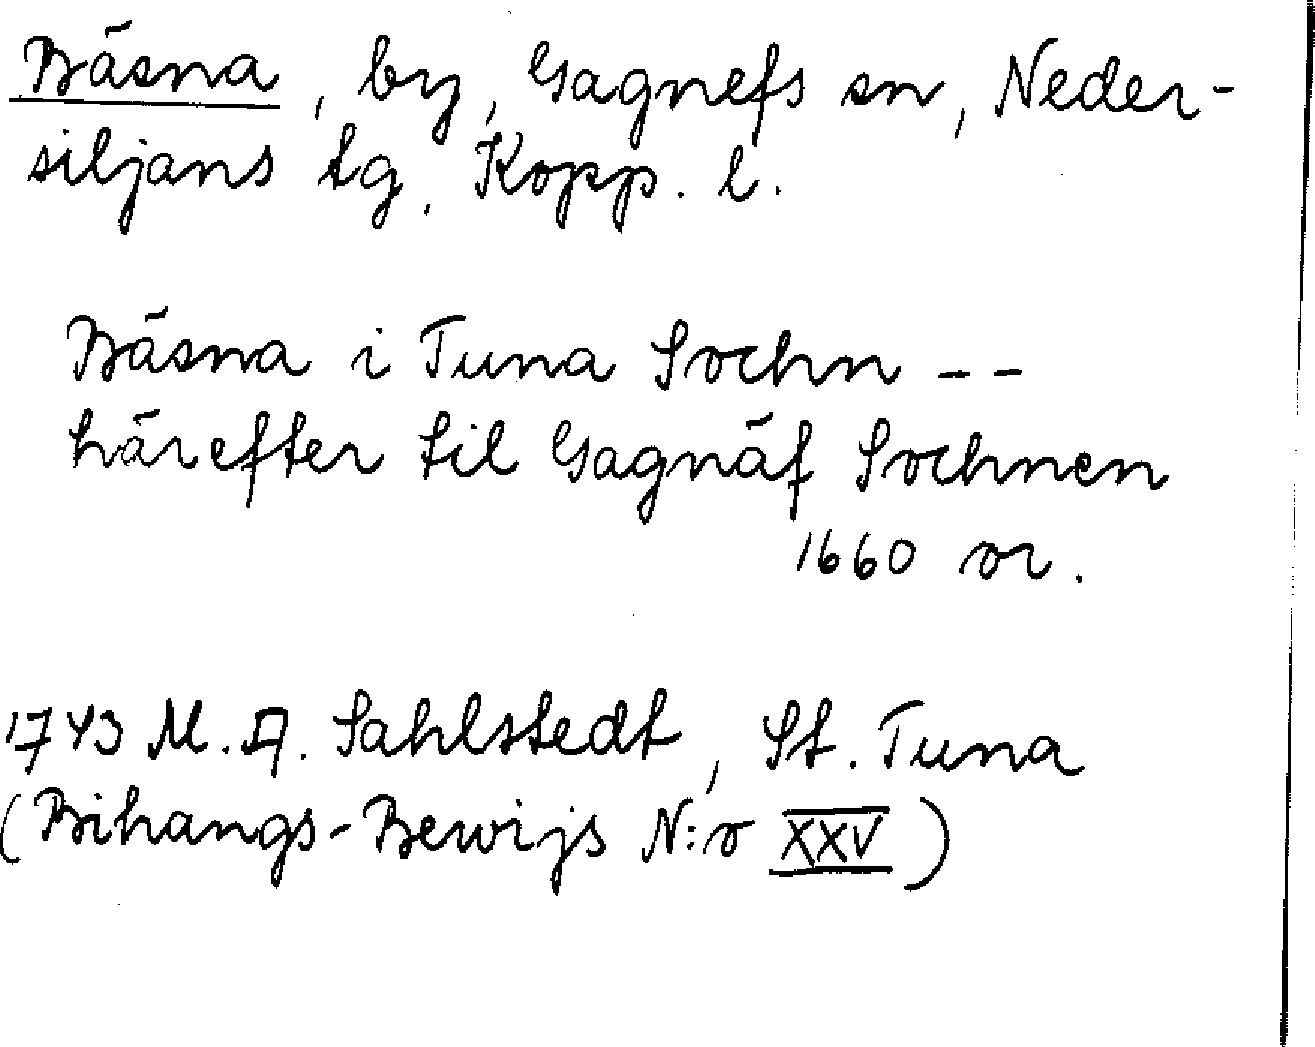 Bäsna, by, Gagnefs sn, Neder-
siljans tg, Kopp. l.
Bäsna i Tuna Sochn --
härefter til Gagnäf Sochnen
1660 or.
1743 M.A. Sahlstedt, St. Tuna
(Bihangs-Bewijs N:o XXV)